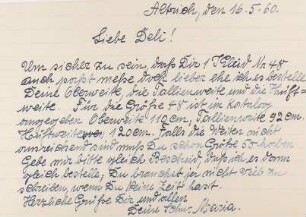 Altrich, den 16.5.60.
Liebe Deli!
Um sicher zu sein, daß Dir 1 Kleid Nr. 48
auch paßt messe doch lieber ehe ich es bestelle
Deine Oberweite, die Taillenweite und die Hüft-
weite. Für die Größe 48 ist im Katalog
angegeben Oberweite 110 cm, Taillenweite 92 cm
Hüftweite 120 cm. Falls die Weiten nicht
ausreichend sind mußt Du schon Größe 50 haben
Gebe mir bitte gleich Bescheid, daß ich es dann
gleich bestelle, Du brauchst ja nicht viel zu
schreiben, wenn Du keine Zeit hast.
Herzliche Grüße Dir und allen
Deine Maria.